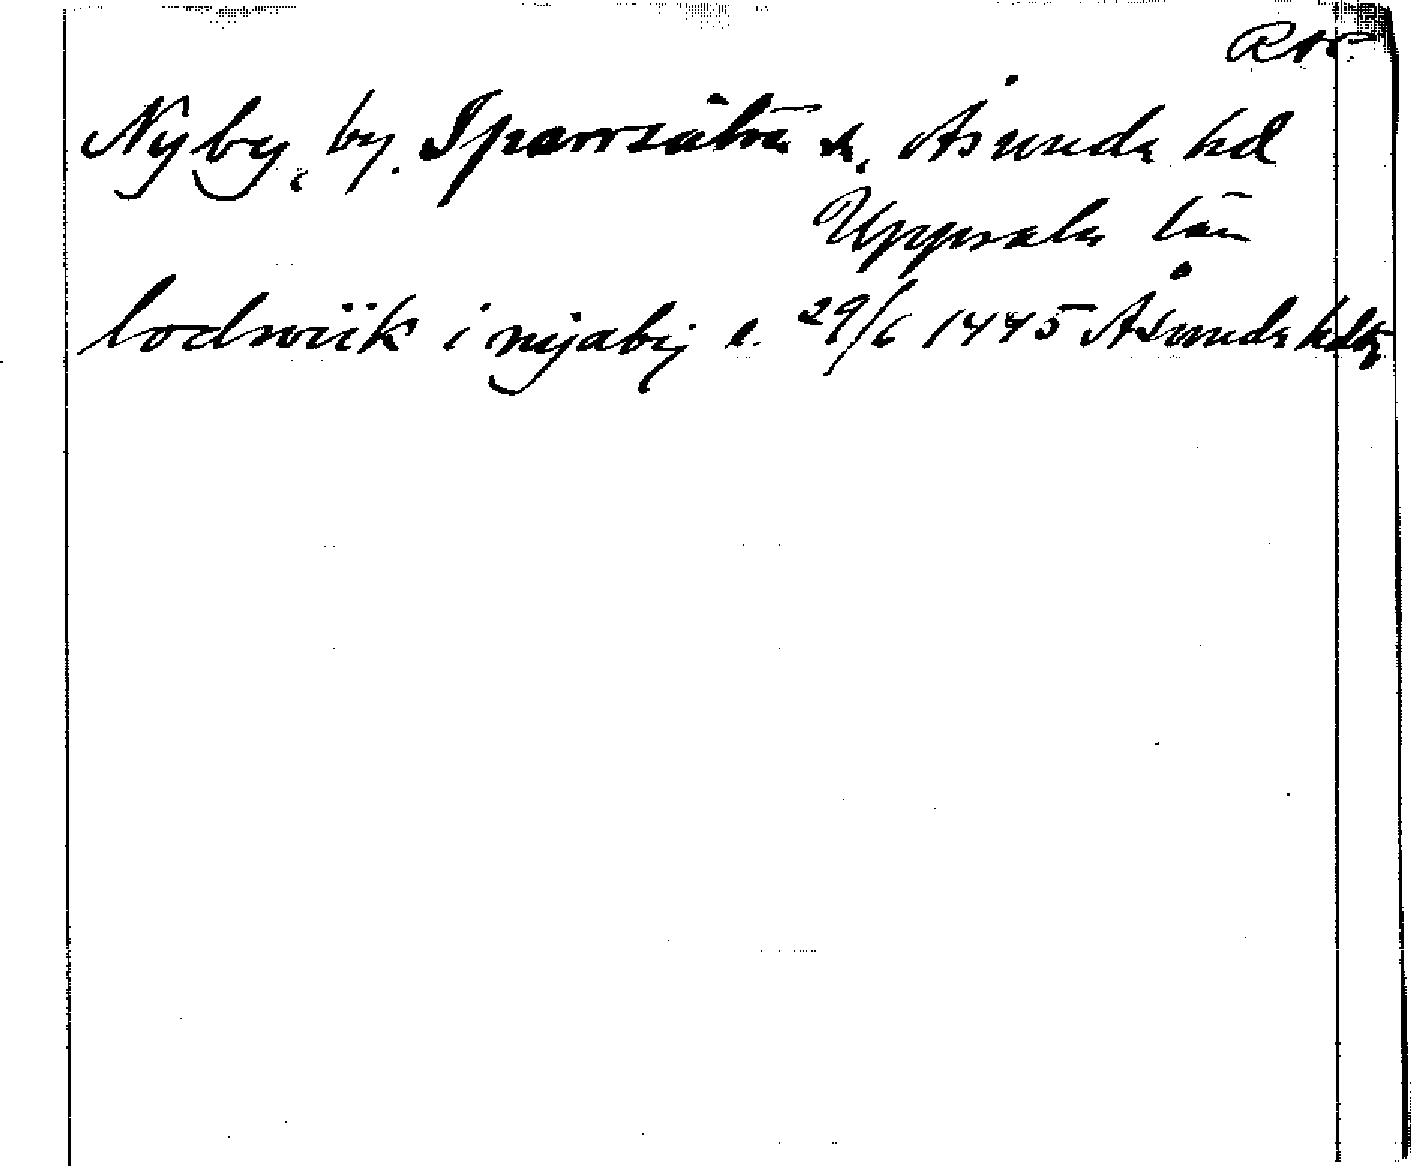 Nyby, by. Sparrsätra sn, Åsunda hd
Uppsala län
lodwiik i nyaby 29/6 1445 Åsunda hdtg